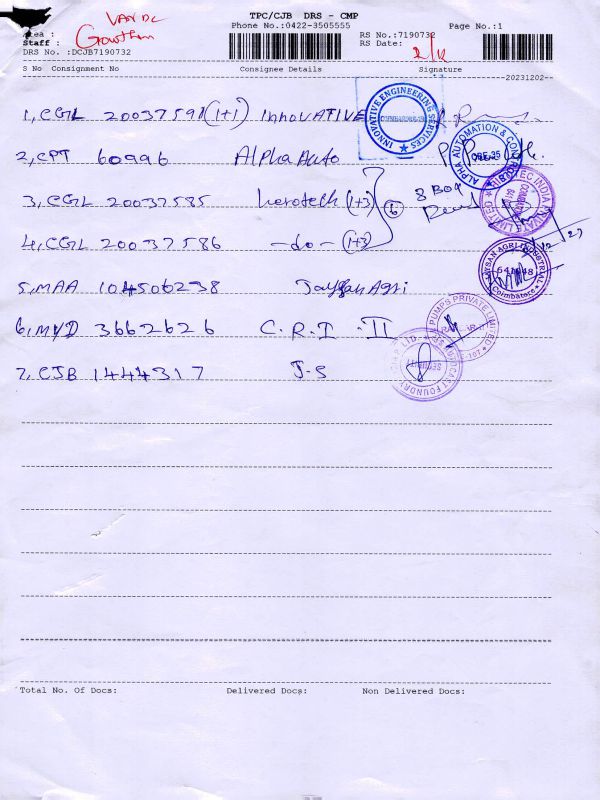 TPC/CJB DRS - CMP
Phone No.:0422-3505555
Page No.:1
Area :
Staff : Gowtham
DRS No. :DCJB7190732
RS No.:7190732
RS Date: 2/12
S No Consignment No Consignee Details Signature
20231202
1, CGL 20037591 (1+1) InnovATIVE
2, CPT 60996 Alpha Auto
3, CGL 20037585 (1+3) 6 8 Box
4, CGL 20037586 -do- (1+3)
5, MAA 104506238 Jaysan Agri
6, MYD 3662626 C.R.I - II
7, CJB 1444317 J-S
INNOVATIVE ENGINEERING SERVICES
COIMBATORE
ALPHA AUTOMATION & CONTROL
CBE-35
INDIA PRIVATE LIMITED
JAYSAN AGRI INDUSTRIAL
Coimbatore
PUMPS PRIVATE LIMITED
FOUNDRY
SECURITY
Total No. Of Docs: Delivered Docs: Non Delivered Docs: